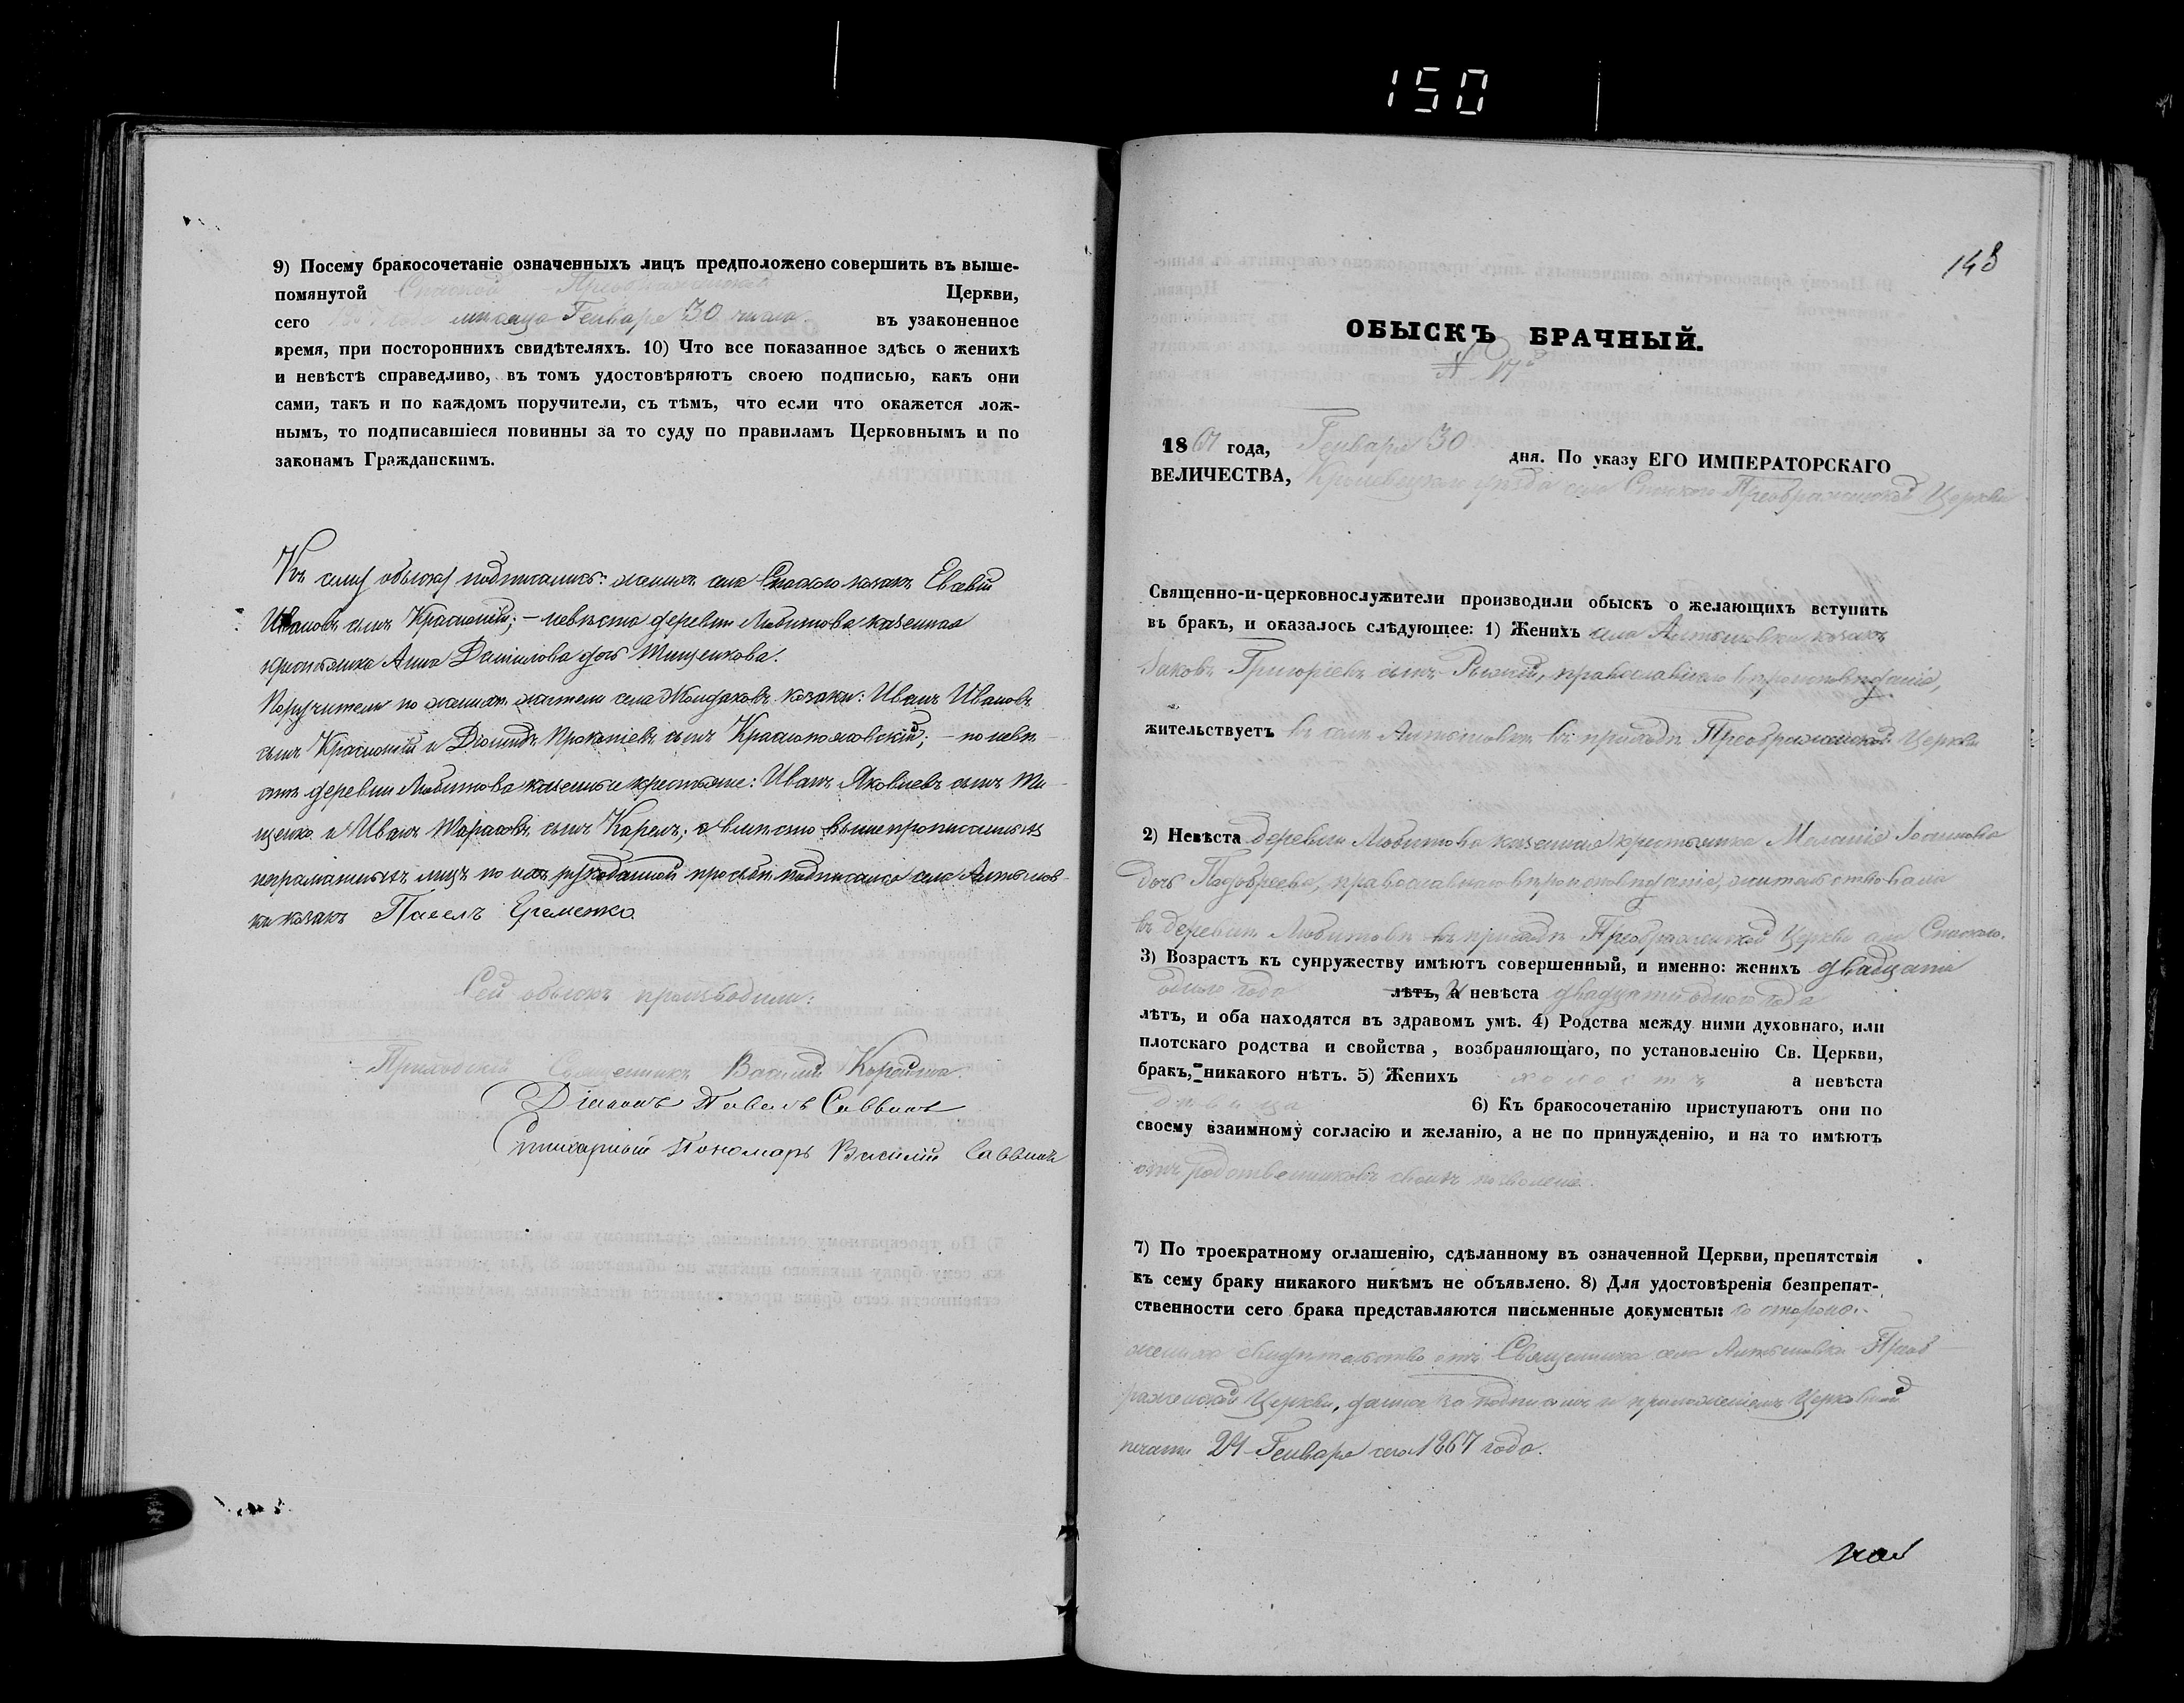 150
9) Посему бракосочетаніе означенныхъ лицъ предположено совершить въ выше-
помянутой Спаской Преображенской Церкви,
сего 1867 года месяца Генваря 30 числа въ узаконенное
время, при постороннихъ свидѣтеляхъ. 10) Что все показанное здѣсь о женихѣ
и невѣстѣ справедливо, въ томъ удостовѣряютъ своею подписью, какъ они
сами, такъ и по каждомъ поручители, съ тѣмъ, что если что окажется лож-
нымъ, то подписавшіеся повинны за то суду по правиламъ Церковнымъ и по
законамъ Гражданскимъ.
Къ сему обыску подписались: женихъ села Спаского козакъ Евсевій
Ивановъ сынъ Красношій; – невѣста деревни Любитова казенная
крестьянка Анна Данилова дочь Тищенкова.
Поручители по женихѣ жители села козаки: Иванъ Ивановъ
сынъ Красношій и Діомидъ Прокопіевъ сынъ Краснопоясовскій; – по невѣ-
стѣ деревни Любитова казенные крестьяне: Иванъ Яковлевъ сынъ Ти-
щенко и Иванъ Тарасовъ сынъ Карелъ; а вмѣсто вышепрописанныхъ
неграмотныхъ лицъ по ихъ рукоданной прозьбѣ подписался села Антонов-
ки козакъ Павелъ Еременко.
Сей обыскъ производили:
Приходскій Священникъ Василій
Діаконъ Павелъ Саввинъ
Стихарный Пономарь Василій Саввичъ
148
ОБЫСКЪ БРАЧНЫЙ.
№ 17й
1867 года, Генваря 30 дня. По указу ЕГО ИМПЕРАТОРСКАГО
ВЕЛИЧЕСТВА, Кролевецкаго уѣзда села Спаского Преображенской Церкви
Священно-и-церковнослужители производили обыскъ о желающихъ вступить
въ бракъ, и оказалось слѣдующее: 1) Женихъ села Антоновки козакъ
Яковъ Григоріевъ сынъ Рыжій, православнаго вѣроисповѣданія,
жительствуетъ въ селѣ Антоновкѣ въ приходѣ Преображенской Церкви
2) Невѣста деревни Любитова казенная крестьянка Меланія Іоаннова
дочь Подобреева, православнаго вѣроисповѣданія, жительствовала
въ деревнѣ Любитовѣ въ приходѣ Преображенской Церкви села Спаского.
3) Возрастъ къ супружеству имѣютъ совершенный, и именно: женихъ двадцати
одного года лѣтъ, а невѣста двадцати одного года
лѣтъ, и оба находятся въ здравомъ умѣ. 4) Родства между ними духовнаго, или
плотскаго родства и свойства, возбраняющаго, по установленію Св. Церкви,
бракъ, никакого нѣтъ. 5) Женихъ холостъ а невѣста
дѣвица 6) Къ бракосочетанію приступаютъ они по
своему взаимному согласію и желанію, а не по принужденію, и на то имѣютъ
отъ родственниковъ своихъ позволеніе.
7) По троекратному оглашенію, сдѣланному въ означенной Церкви, препятствія
къ сему браку никакого никѣмъ не объявлено. 8) Для удостовѣренія безпрепят-
ственности сего брака представляются письменные документы: со стороны
жениха свидѣтельство отъ Священника села Антоновки Преоб-
раженской Церкви, данное за подписомъ и приложеніемъ Церковной
печати 24 Генваря сего 1867 года.